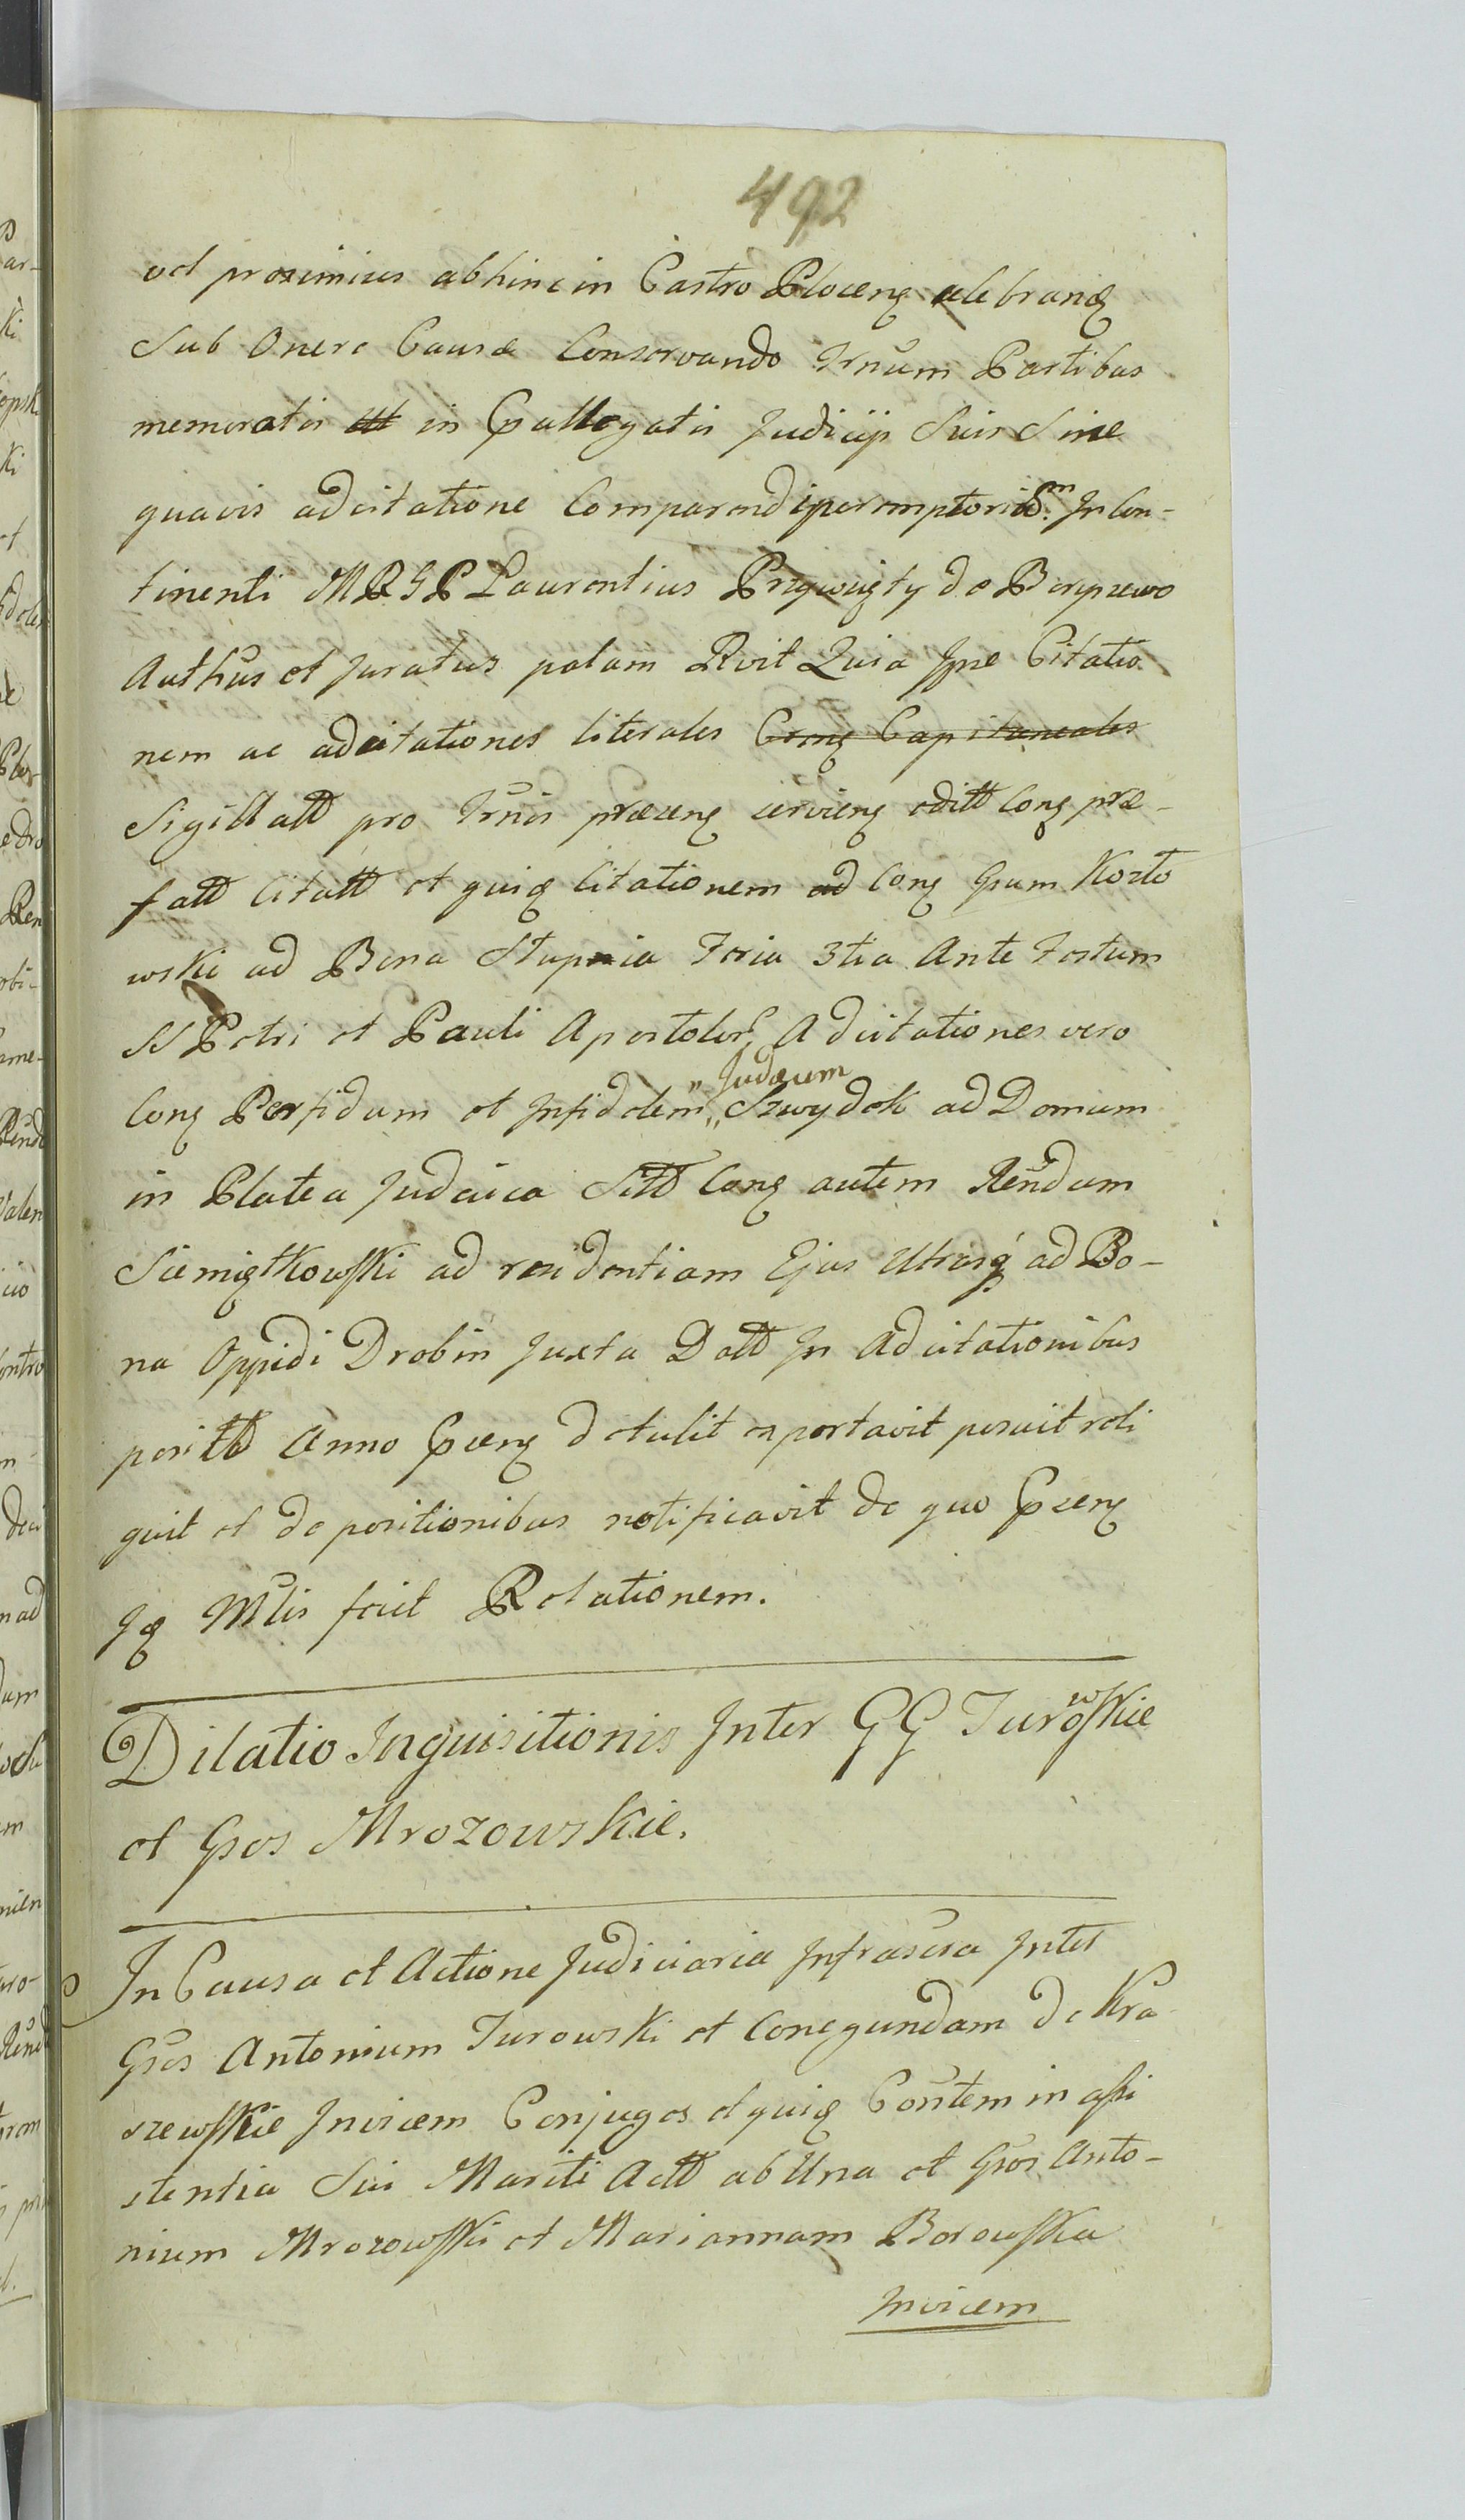 492
vel proximius abhinc in Castro Plocen celebran
Sub Onere Causæ Conservando Trnum Partibus
memoratis in præallegatis Judicijs Suis Sine
quavis adcitatione Comparendi peremptorie Sm. In Con-
tinenti MRGP Laurentius Przywięty de
Authus et Juratus palam Rvit Quia Ipse Citatio
nem ac adcitationes literales Coneg Capitaneales
Sigillatt pro Trnis præzen servien editt Con præ-
fatt Citatt et quidem Citationem ad Con Gsum Kozło
wski ad Bona Stupnia Feria 3tia Ante Festum
SS Petri et Pauli Apostolor. Adcitationes vero
Con Perfidum et Infidelem „Judæum„ Szwydek ad Domum
in Platea Judaica Sitt Con autem Rendum
Siemiątkowski ad residentiam Ejus Utrasq ad Bo-
na Oppidi Drobin Juxta Datt In Adcitationibus
positt Anno præsen detulit exportavit posuit reli
quit et de positionibus notificavit de quo præsen
Mtlis fecit Relationem.
Dilatio Inquisitionis Inter GG Turowskie
et Gsos Mrozowskie.
In Causa et Actione Judiciaria Infrascra Inter
Gsos Antonium Turowski et Conegundam de Kra
szewskie Invicem Conjuges et quidem Contem in assi
stentia Sui Mariti Actt ab Una et Gsos Anto-
nium Mrozowski et Mariannam Borowska
Invicem